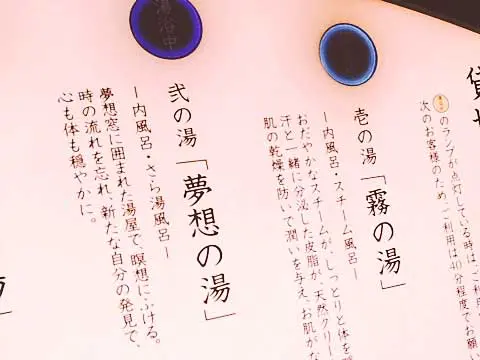 貸
のランプが点灯している時は、ご利用
次のお客様のため、ご利用は40分程度でお願い
壱の湯「霧の湯」
ー内風呂・スチーム風呂ー
おだやかなスチームが、しっとりと体を
汗と一緒に分泌した皮脂が、天然クリー
肌の乾燥を防いで潤いを与え、お肌が
湯浴中
弐の湯「夢想の湯」
ー内風呂・さら湯風呂ー
夢想窓に囲まれた湯屋で、瞑想にふける。
時の流れを忘れ、新たな自分の発見で、
心も体も穏やかに。